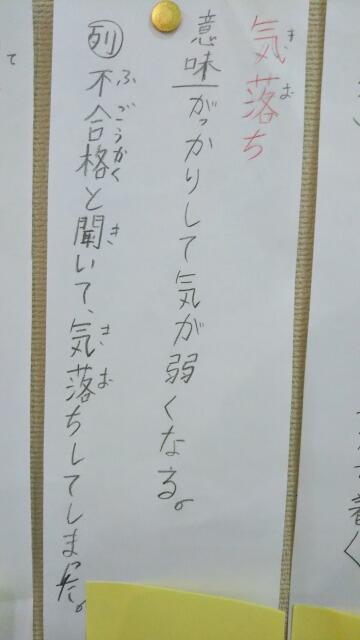 気落ち
きお
意味 がっかりして気が弱くなる。
列 不合格と聞いて、気落ちしてしまった。
ふごうかく き きお
て